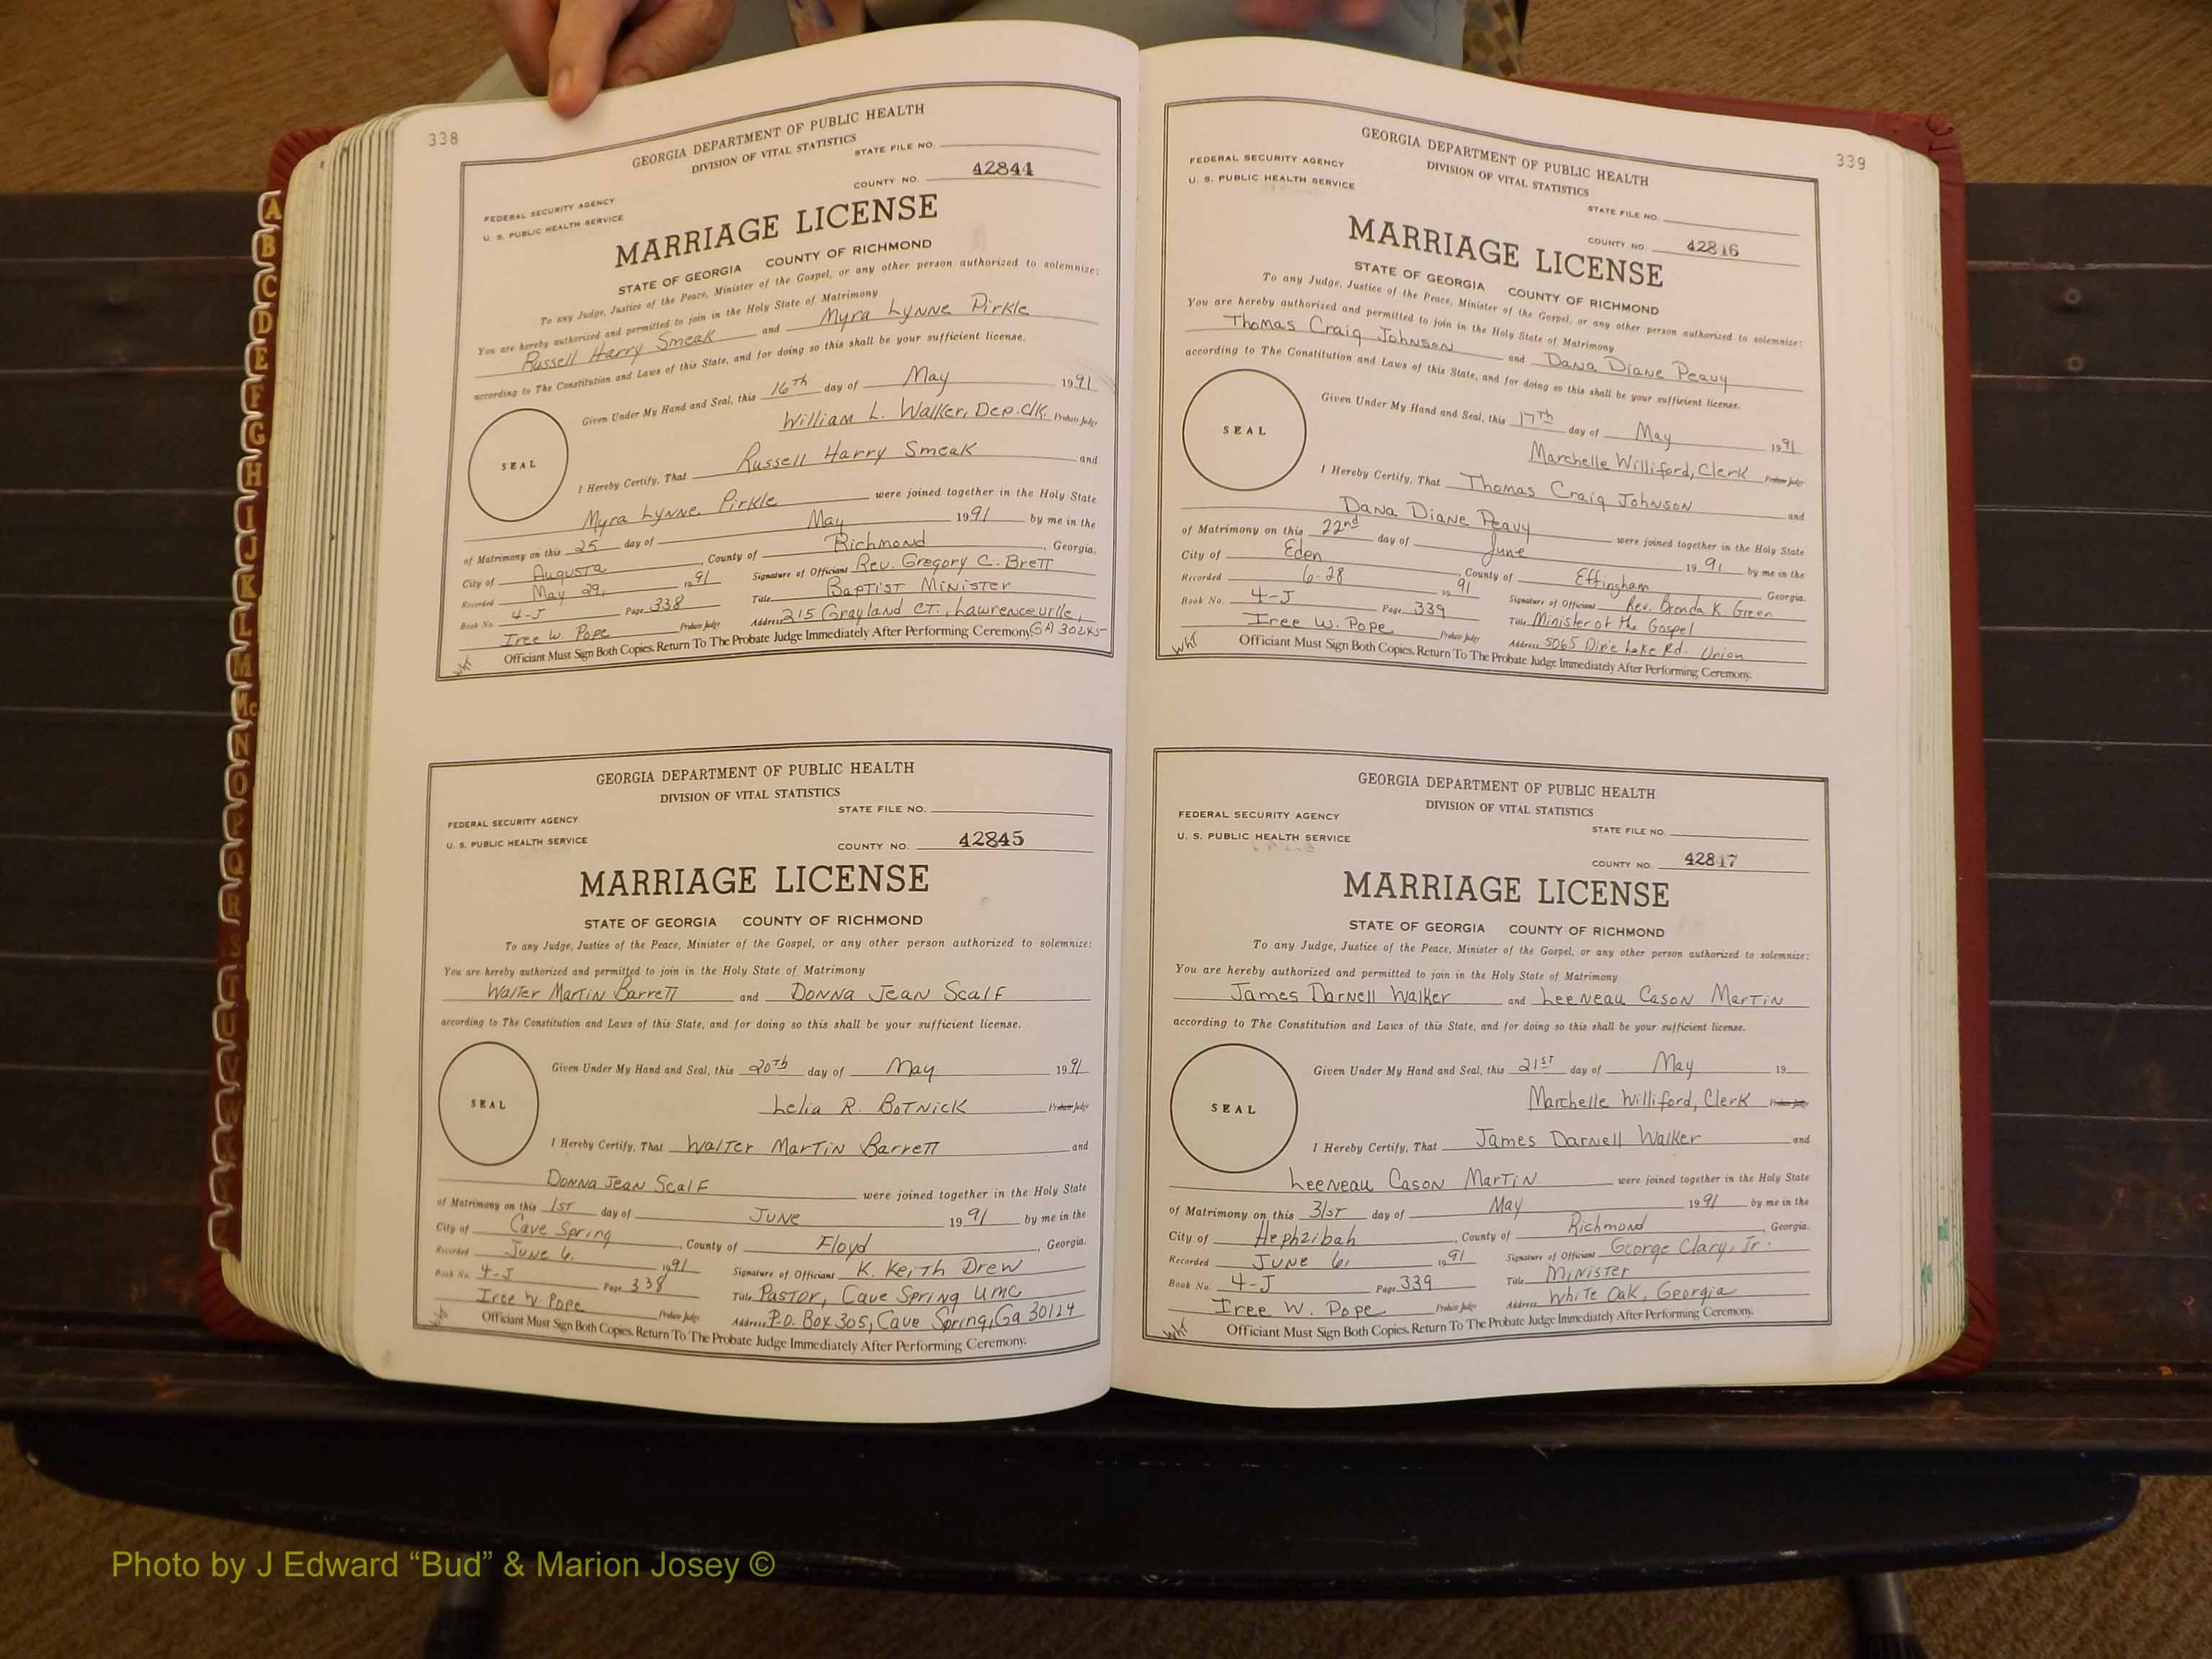 338
GEORGIA DEPARTMENT OF PUBLIC HEALTH
DIVISION OF VITAL STATISTICS
STATE FILE NO.
COUNTY NO. 42844
FEDERAL SECURITY AGENCY
U. S. PUBLIC HEALTH SERVICE
MARRIAGE LICENSE
STATE OF GEORGIA COUNTY OF RICHMOND
To any Judge, Justice of the Peace, Minister of the Gospel, or any other person authorized to solemnize:
You are hereby authorized and permitted to join in the Holy State of Matrimony
Russell Harry Smeak and Myra Lynne Pirkle
according to The Constitution and Laws of this State, and for doing so this shall be your sufficient license.
Given Under My Hand and Seal, this 16Th day of May 1991
William L. Walker, Dep. Clk. Probate Judge
SEAL
I Hereby Certify, That Russell Harry Smeak and
Myra Lynne Pirkle were joined together in the Holy State
of Matrimony on this 25 day of May 1991 by me in the
City of Augusta, County of Richmond, Georgia.
Recorded May 29, 1991 Signature of Officiant Rev. Gregory C. Brett
Book No. 4-J Page 338 Title Baptist Minister
Iree W. Pope Probate Judge Address 215 Grayland CT., Lawrenceville, GA 30245
Officiant Must Sign Both Copies. Return To The Probate Judge Immediately After Performing Ceremony.
GEORGIA DEPARTMENT OF PUBLIC HEALTH
DIVISION OF VITAL STATISTICS
STATE FILE NO.
FEDERAL SECURITY AGENCY
U. S. PUBLIC HEALTH SERVICE
COUNTY NO. 42845
MARRIAGE LICENSE
STATE OF GEORGIA COUNTY OF RICHMOND
To any Judge, Justice of the Peace, Minister of the Gospel, or any other person authorized to solemnize:
You are hereby authorized and permitted to join in the Holy State of Matrimony
Walter Martin Barrett and Donna Jean Scalf
according to The Constitution and Laws of this State, and for doing so this shall be your sufficient license.
Given Under My Hand and Seal, this 20Th day of May 1991
Lelia R. Botnick Probate Judge
SEAL
I Hereby Certify, That Walter Martin Barrett and
Donna Jean Scalf were joined together in the Holy State
of Matrimony on this 1st day of June 1991 by me in the
City of Cave Spring, County of Floyd, Georgia.
Recorded June 6, 1991 Signature of Officiant K. Keith Drew
Book No. 4-J Page 338 Title Pastor, Cave Spring UMC
Iree W. Pope Probate Judge Address P.O. Box 305, Cave Spring, Ga 30124
Officiant Must Sign Both Copies. Return To The Probate Judge Immediately After Performing Ceremony.
339
GEORGIA DEPARTMENT OF PUBLIC HEALTH
DIVISION OF VITAL STATISTICS
FEDERAL SECURITY AGENCY
U. S. PUBLIC HEALTH SERVICE
STATE FILE NO.
COUNTY NO. 42816
MARRIAGE LICENSE
STATE OF GEORGIA COUNTY OF RICHMOND
To any Judge, Justice of the Peace, Minister of the Gospel, or any other person authorized to solemnize:
You are hereby authorized and permitted to join in the Holy State of Matrimony
Thomas Craig Johnson and Dana Diane Peavy
according to The Constitution and Laws of this State, and for doing so this shall be your sufficient license.
Given Under My Hand and Seal, this 17Th day of May 1991
Marchelle Williford, Clerk Probate Judge
SEAL
I Hereby Certify, That Thomas Craig Johnson and
Dana Diane Peavy were joined together in the Holy State
of Matrimony on this 22nd day of June 1991 by me in the
City of Eden, County of Effingham, Georgia.
Recorded 6-28 1991 Signature of Officiant Rev. Brenda K. Green
Book No. 4-J Page 339 Title Minister of the Gospel
Iree W. Pope Probate Judge Address 5065 Dixie Lake Rd. Union
WHT Officiant Must Sign Both Copies. Return To The Probate Judge Immediately After Performing Ceremony.
GEORGIA DEPARTMENT OF PUBLIC HEALTH
DIVISION OF VITAL STATISTICS
FEDERAL SECURITY AGENCY
U. S. PUBLIC HEALTH SERVICE
STATE FILE NO.
COUNTY NO. 42817
MARRIAGE LICENSE
STATE OF GEORGIA COUNTY OF RICHMOND
To any Judge, Justice of the Peace, Minister of the Gospel, or any other person authorized to solemnize:
You are hereby authorized and permitted to join in the Holy State of Matrimony
James Darnell Walker and Leeneau Cason Martin
according to The Constitution and Laws of this State, and for doing so this shall be your sufficient license.
Given Under My Hand and Seal, this 21ST day of May 19
Marchelle Williford, Clerk Probate Judge
SEAL
I Hereby Certify, That James Darnell Walker and
Leeneau Cason Martin were joined together in the Holy State
of Matrimony on this 31st day of May 1991 by me in the
City of Hephzibah, County of Richmond, Georgia.
Recorded June 6, 1991 Signature of Officiant George Clary, Jr.
Book No. 4-J Page 339 Title Minister
Iree W. Pope Probate Judge Address White Oak, Georgia
Officiant Must Sign Both Copies. Return To The Probate Judge Immediately After Performing Ceremony.
A
B
C
D
E
F
G
H
I
J
K
L
M
Mc
N
O
P
Q
R
S
T
U
V
W
Photo by J Edward “Bud” & Marion Josey ©